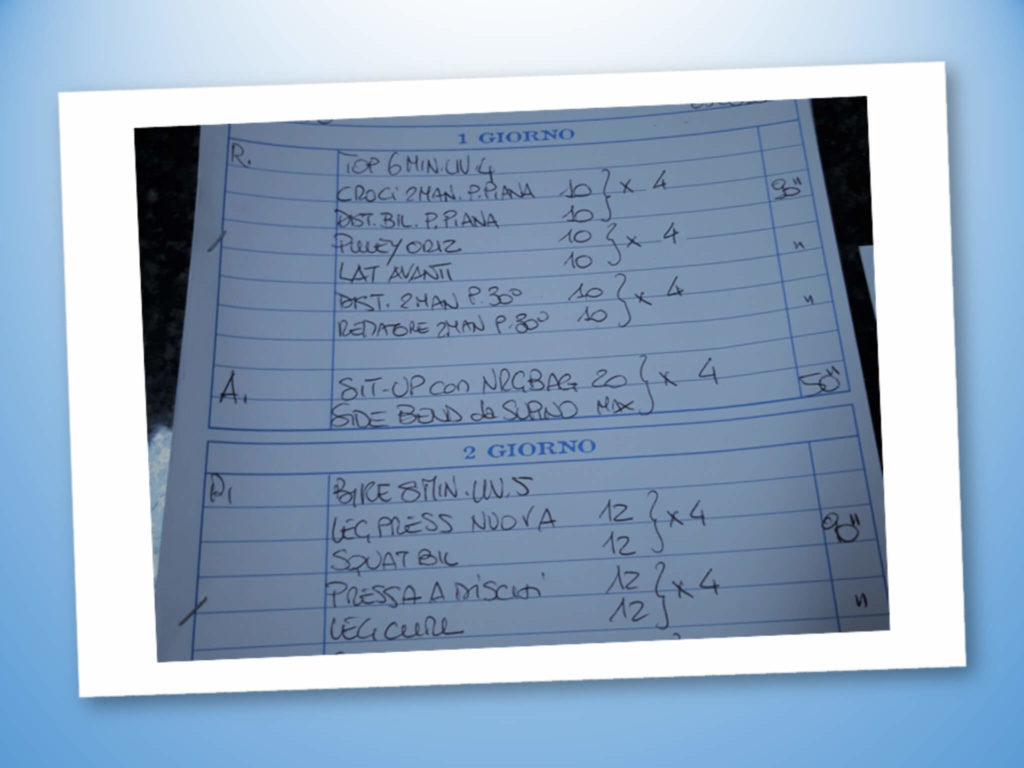 1 GIORNO
R. TOP 6 MIN. LIV. 4
CROCI 2 MAN. P. PIANA 10 } x 4 90"
DIST. BIL. P. PIANA 10
PULLEY ORIZ 10 } x 4 "
LAT AVANTI 10
DIST. 2 MAN P. 30° 10 } x 4 "
2 MAN P. 30° 10
A. SIT-UP con NRGBAG 20 } x 4 50"
SIDE BEND da SUPINO MAX
2 GIORNO
BIKE 8 MIN. LIV. 5
LEG PRESS NUOVA 12 } x 4 90"
SQUAT BIL 12
PRESSA A DISCHI 12 } x 4 "
LEG CURL 12